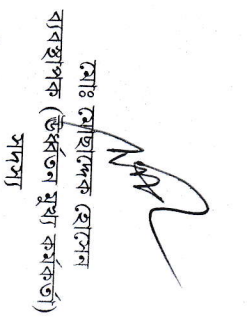 মোঃ মোছাদ্দেক হোসেন
ব্যবস্থাপক (ঊর্ধ্বতন মুখ্য কর্মকর্তা)
সদস্য